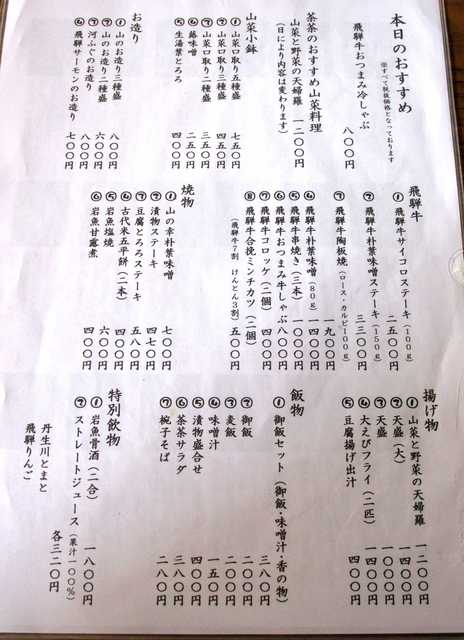 本日のおすすめ
※すべて税抜価格となっております
飛騨牛おつまみ冷しゃぶ 八〇〇円
茶茶のおすすめ山菜料理
山菜と野菜の天婦羅 一二〇〇円
(日により内容は変わります)
山菜小鉢
①山菜口取り五種盛 七五〇円
②山菜口取り三種盛 四五〇円
⑦山菜口取り二種盛 三五〇円
⑥蕗味噌 二五〇円
⑤生湯葉とろろ 四〇〇円
お造り
①山のお造り三種盛 八〇〇円
②山のお造り二種盛 六〇〇円
⑦河ふぐのお造り 八〇〇円
⑥飛騨サーモンのお造り 七〇〇円
飛騨牛
①飛騨牛サイコロステーキ(100g) 二五〇〇円
②飛騨牛朴葉味噌ステーキ(150g) 二三〇〇円
⑦飛騨牛陶板焼(ロース・カルビ100g) 一九〇〇円
④飛騨牛朴葉味噌(80g) 一四〇〇円
⑤飛騨牛串焼き(三本) 一〇〇〇円
⑥飛騨牛おつまみ牛しゃぶ 八〇〇円
⑦飛騨牛コロッケ(二個) 四〇〇円
⑧飛騨牛合挽ミンチカツ(二個) 五〇〇円
(飛騨牛7割 けんとん3割)
焼物
①山の幸朴葉味噌 七〇〇円
②漬物ステーキ 四七〇円
⑦豆腐とろろステーキ 五八〇円
④古代米五平餅(二本) 四〇〇円
⑤岩魚塩焼 六〇〇円
⑥岩魚甘露煮 四〇〇円
揚げ物
①山菜と野菜の天婦羅 一二〇〇円
②天盛(大) 一四〇〇円
⑦天盛 一〇〇〇円
④大えびフライ(二匹) 一四〇〇円
⑤豆腐揚げ出汁 四〇〇円
飯物
①御飯セット(御飯・味噌汁・香の物) 三八〇円
②御飯 二〇〇円
⑦麦飯 二〇〇円
④味噌汁 一五〇円
⑤漬物盛合せ 四〇〇円
⑥茶茶サラダ 三八〇円
⑦椀子そば 二八〇円
特別飲物
①岩魚骨酒(二合) 一八〇〇円
②ストレートジュース(果汁一〇〇%) 各三二〇円
丹生川とまと
飛騨りんご